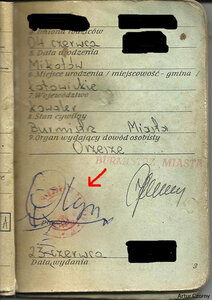 Imiona rodziców
04 czerwca
3. Data urodzenia
Mikołów
5. Miejsce urodzenia / miejscowość - gmina /
Katowickie
7. Województwo
Kawaler
8. Stan cywilny
Burmistrz Miasta
9. Organ wydający dowód osobisty
Orzesze
BURMISTRZ MIASTA
23 czerwca
Data wydania
3
A
Artur Czerny